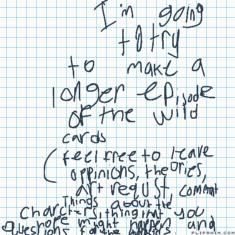 I'm going
to try
to make a
longer episode
of the wild
cards
(feel free to leave
oppinions, theories,
art requst, comment
Things about the
Characters thing that you
might happen and
questions for the
FLIPANIM.COM